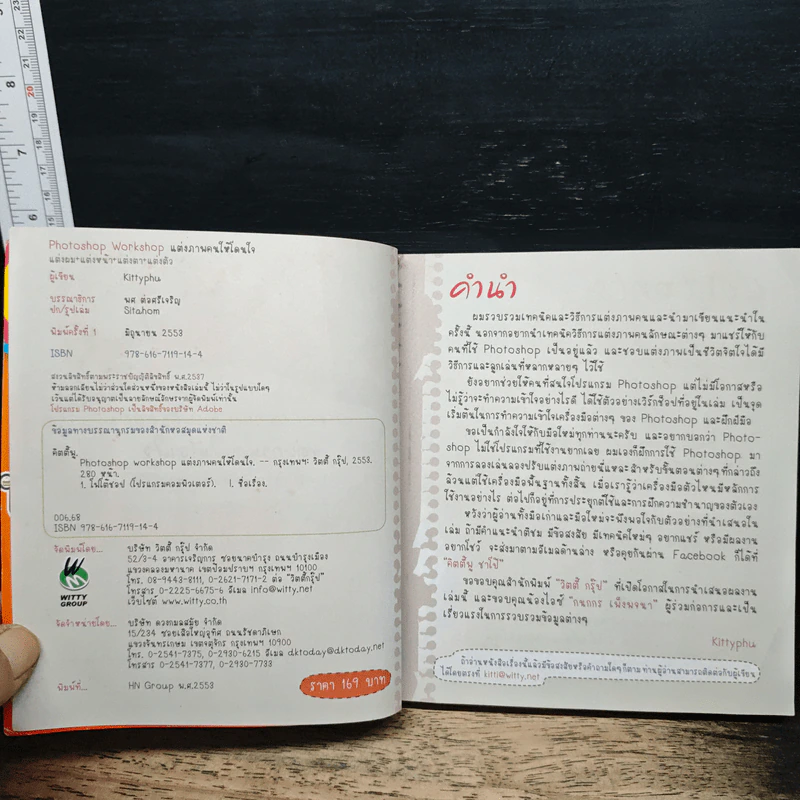 Photoshop Workshop แต่งภาพคนให้โดนใจ
แต่งผม•แต่งหน้า•แต่งตา•แต่งตัว
ผู้เขียน Kittyphu
บรรณาธิการ พศ ต่อศรีเจริญ
ปก/รูปเล่ม Sitahom
พิมพ์ครั้งที่ 1 มิถุนายน 2553
ISBN 978-616-7119-14-4
สงวนลิขสิทธิ์ตามพระราชบัญญัติลิขสิทธิ์ พ.ศ.2537
ห้ามลอกเลียนไม่ว่าส่วนใดส่วนหนึ่งของหนังสือเล่มนี้ ไม่ว่าในรูปแบบใดๆ
เว้นแต่ได้รับอนุญาตเป็นลายลักษณ์อักษรจากผู้จัดพิมพ์เท่านั้น
โปรแกรม Photoshop เป็นลิขสิทธิ์ของบริษัท Adobe
ข้อมูลทางบรรณานุกรมของสำนักหอสมุดแห่งชาติ
คิตตี้พู.
Photoshop workshop แต่งภาพคนให้โดนใจ. -- กรุงเทพฯ: วิตตี้ กรุ๊ป, 2553.
280 หน้า.
1. โฟโต้ชอป (โปรแกรมคอมพิวเตอร์). I. ชื่อเรื่อง.
006.68
ISBN 978-616-7119-14-4
จัดพิมพ์โดย... บริษัท วิตตี้ กรุ๊ป จำกัด
52/3-4 อาคารเจริญการ ซอยนาคบำรุง ถนนบำรุงเมือง
แขวงคลองมหานาค เขตป้อมปราบฯ กรุงเทพฯ 10100
โทร. 08-9443-8111, 0-2621-7171-2 ต่อ "วิตตี้กรุ๊ป"
โทรสาร 0-2225-6675-6 อีเมล info@witty.net
เว็บไซต์ www.witty.co.th
WITTY
GROUP
จัดจำหน่ายโดย... บริษัท ดวงกมลสมัย จำกัด
15/234 ซอยเสือใหญ่อุทิศ ถนนรัชดาภิเษก
แขวงจันทรเกษม เขตจตุจักร กรุงเทพฯ 10900
โทร. 0-2541-7375, 0-2930-6215 อีเมล dktoday@dktoday.net
โทรสาร 0-2541-7377, 0-2930-7733
พิมพ์ที่... HN Group พ.ศ.2553
ราคา 169 บาท
คำนำ
ผมรวบรวมเทคนิคและวิธีการแต่งภาพคนและนำมาเขียนแนะนำใน
ครั้งนี้ นอกจากอยากนำเทคนิควิธีการแต่งภาพคนลักษณะต่างๆ มาแชร์ให้กับ
คนที่ใช้ Photoshop เป็นอยู่แล้ว และชอบแต่งภาพเป็นชีวิตจิตใจได้มี
วิธีการและลูกเล่นที่หลากหลายๆ ไว้ใช้
ยังอยากช่วยให้คนที่สนใจโปรแกรม Photoshop แต่ไม่มีโอกาสหรือ
ไม่รู้ว่าจะทำความเข้าใจอย่างไรดี ได้ใช้ตัวอย่างเวิร์กช็อปที่อยู่ในเล่ม เป็นจุด
เริ่มต้นในการทำความเข้าใจเครื่องมือต่างๆ ของ Photoshop และฝึกฝีมือ
ขอเป็นกำลังใจให้กับมือใหม่ทุกท่านนะครับ และอยากบอกว่า Photo-
shop ไม่ใช่โปรแกรมที่ใช้งานยากเลย ผมเองก็ฝึกการใช้ Photoshop มา
จากการลองเล่นลองปรับแต่งภาพถ่ายนี่แหละ สำหรับขั้นตอนต่างๆ ที่กล่าวถึง
ล้วนแต่ใช้เครื่องมือพื้นฐานทั้งสิ้น เมื่อเรารู้ว่าเครื่องมือตัวไหนมีหลักการ
ใช้งานอย่างไร ต่อไปก็อยู่ที่การประยุกต์ใช้และการฝึกความชำนาญของตัวเอง
หวังว่าผู้อ่านทั้งมือเก่าและมือใหม่จะพึงพอใจกับตัวอย่างที่นำเสนอใน
เล่ม ถ้ามีคำแนะนำติชม มีข้อสงสัย มีเทคนิคใหม่ๆ อยากแชร์ หรือมีผลงาน
อยากโชว์ จะส่งมาตามอีเมลด้านล่าง หรือคุยกันผ่าน Facebook ก็ได้ที่
"คิตตี้พู ชาโป้"
ขอขอบคุณสำนักพิมพ์ "วิตตี้ กรุ๊ป" ที่เปิดโอกาสในการนำเสนอผลงาน
เล่มนี้ และขอบคุณน้องไอซ์ "กนกกร เพ็งพจนา" ผู้ร่วมก่อการและเป็น
เรี่ยวแรงในการรวบรวมข้อมูลต่างๆ
Kittyphu
ถ้าอ่านหนังสือเรื่องนี้แล้วมีข้อสงสัยหรือคำถามใดๆ ก็ตาม ท่านผู้อ่านสามารถติดต่อกับผู้เขียน
ได้โดยตรงที่ kitti@witty.net